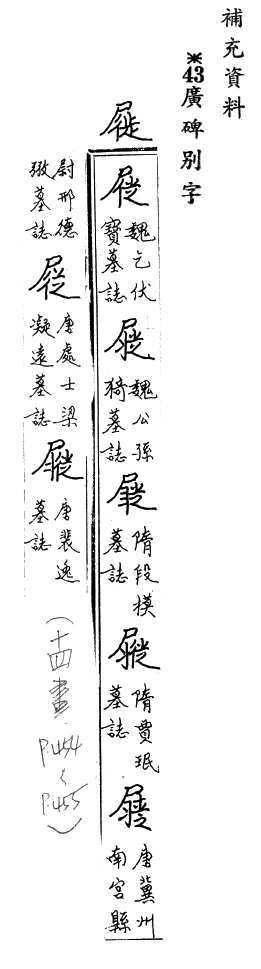 補充資料
※43廣碑別字
屣
魏乞伏
寶墓誌
魏公孫
猗墓誌
隋段模
墓誌
隋賈珉
墓誌
唐冀州
南宮縣
尉邢德
墓誌
唐處士梁
凝遠墓誌
唐裴逸
墓誌
(十四畫 P.454~P.455)